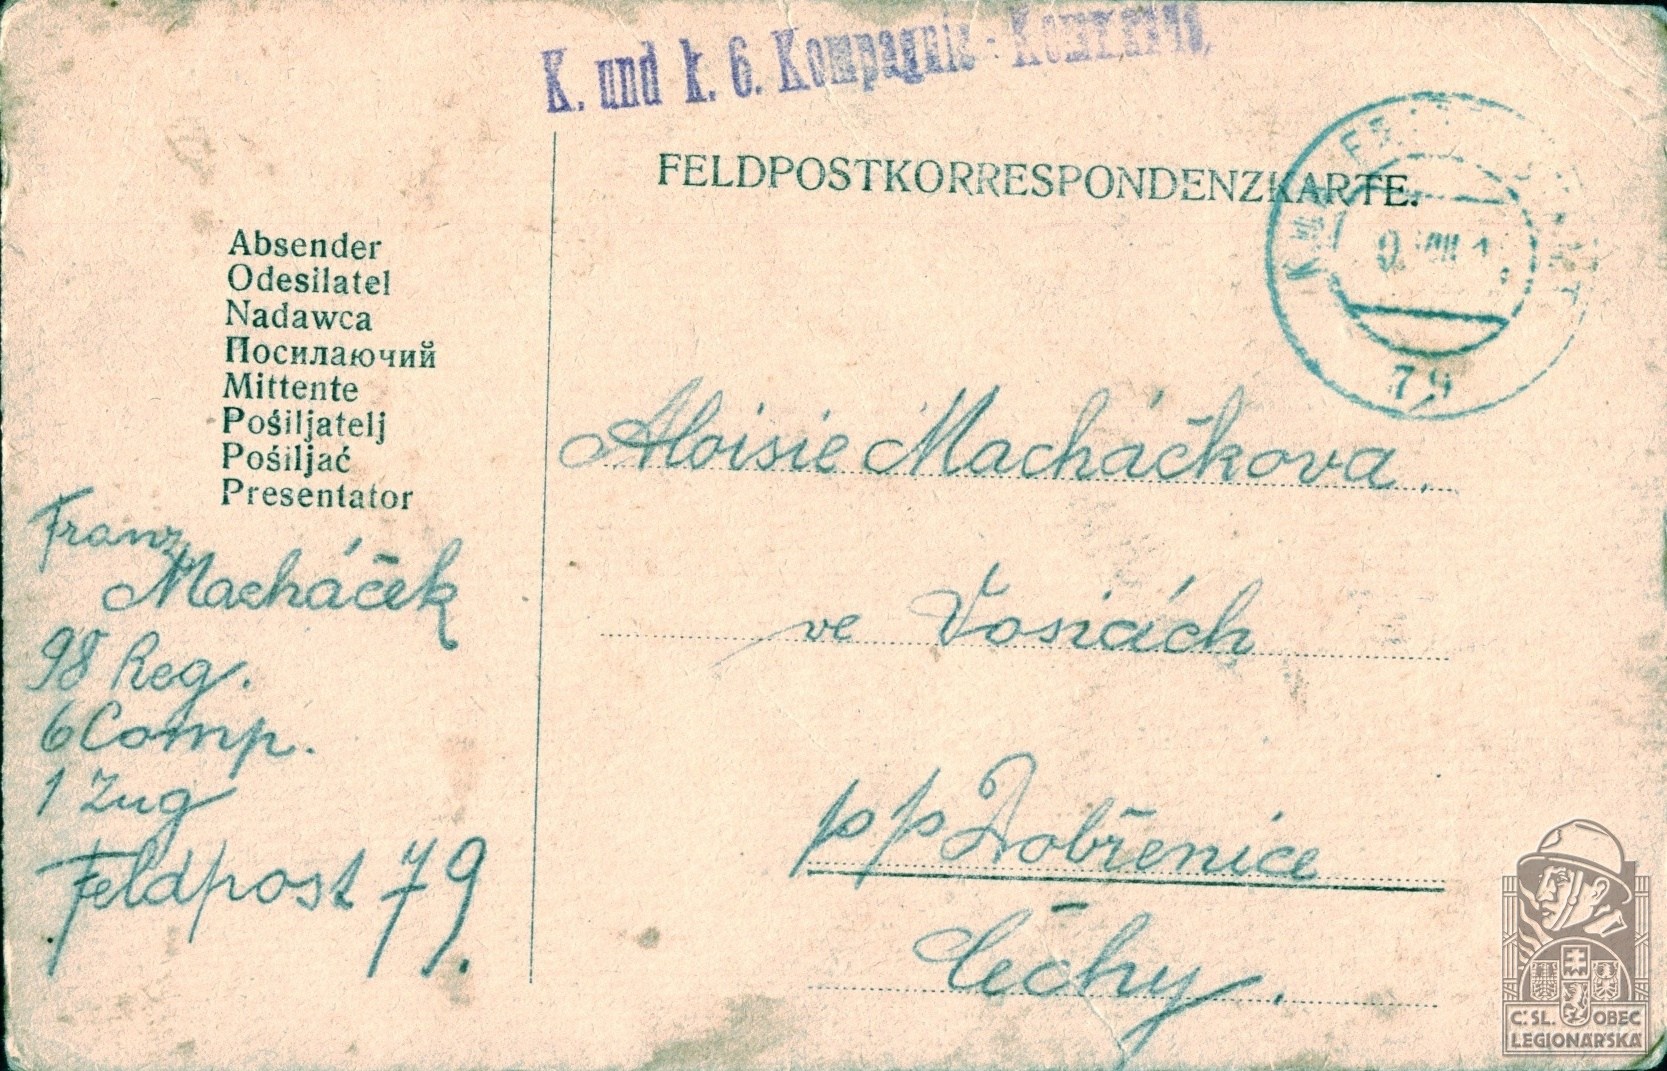 K. und k. 6. Kompagnie-Kommando,
FELDPOSTKORRESPONDENZKARTE.
9. VIII. 1
79
Absender
Odesilatel
Nadawca
Посилаючий
Mittente
Pošiljatelj
Pošiljač
Presentator
Franz
Macháček
98 Reg.
6 Comp.
1 Zug
Feldpost 79.
Aloisie Macháčkova.
ve Vosicích
pp Dobřenice
Čechy.
Č. SL. OBEC
LEGIONÁŘSKÁ